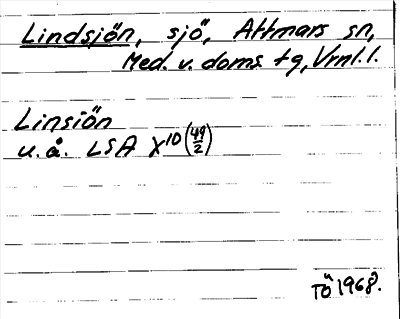 Lindsjön, sjö, Attmars sn,
Med. v. doms. tg, Vrnl. l.
Linsiön
u. å. LSA X10 (49/2)
TÖ 1968.